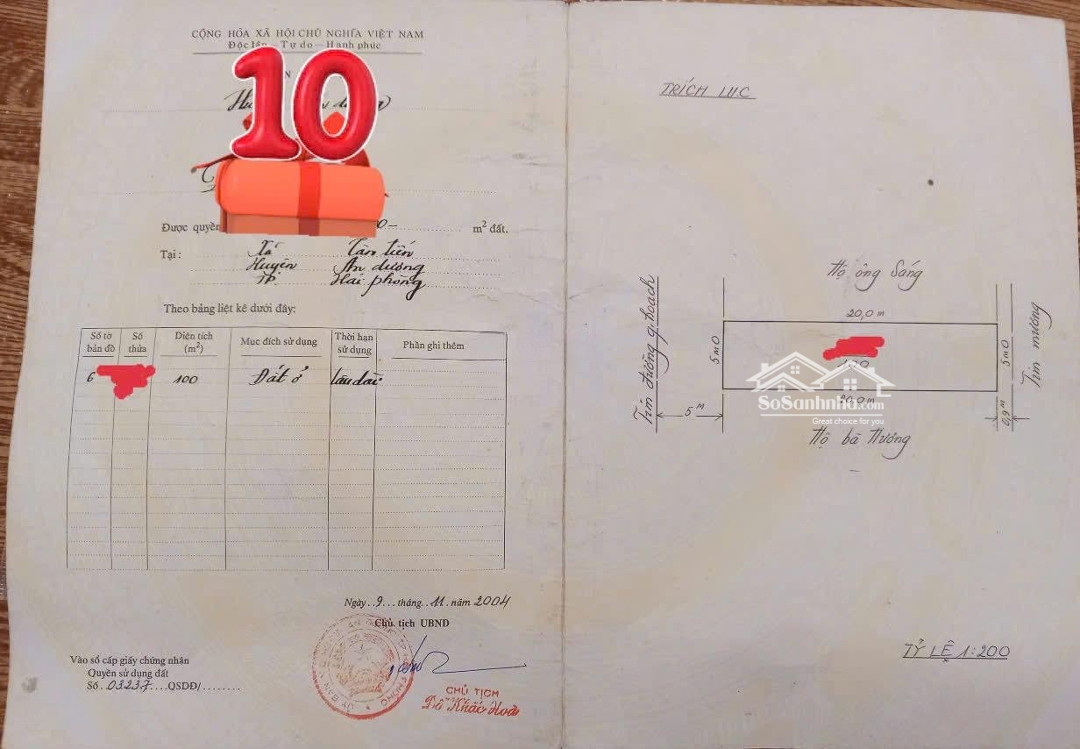 CỘNG HÒA XÃ HỘI CHỦ NGHĨA VIỆT NAM
Độc lập – Tự do – Hạnh phúc
10
Được quyền
m² đất.
Tại: Xã Tân tiến
Huyện An dương
TP. Hải phòng
Theo bảng liệt kê dưới đây:
Số tờ bản đồ Số thửa Diện tích (m²) Mục đích sử dụng Thời hạn sử dụng Phần ghi thêm
6 100 Đất ở Lâu dài
Ngày 9 tháng 11 năm 2004
Chủ tịch UBND
Vào sổ cấp giấy chứng nhận
Quyền sử dụng đất
Số 03237 QSDĐ/
CHỦ TỊCH
Đỗ Khắc Hoà
TRÍCH LỤC
Hộ ông Sáng
20,0m
Tim đường q.hoạch
5m0
100
5m0
Tim mương
20,0m
5m
0,9m
Hộ bà Hường
SoSanhnha.com
Great choice for you
TỶ LỆ 1:200